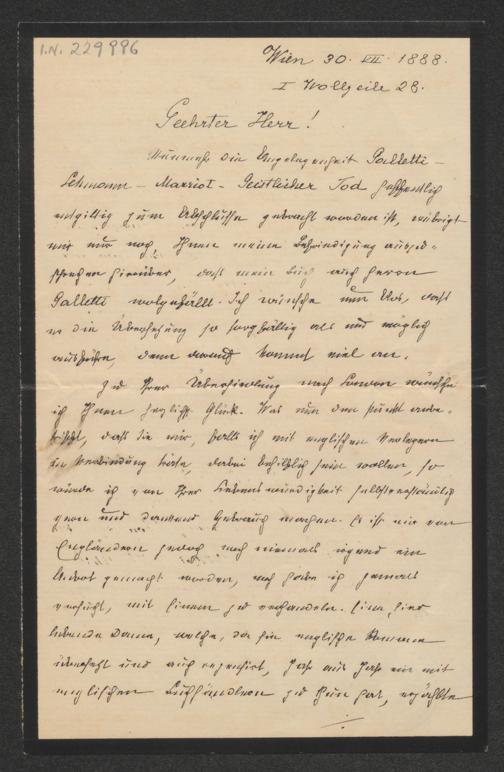 I.N. 229996
Wien 30. VII. 1888.
I Wollzeile 28.
Geehrter Herr!
Nunmehr die Angelegenheit Galletti-
Lehmann – Marriot – Geistlicher Tod hoffentlich
entgiltig zum Abschlusse gebracht worden ist, erübrigt
mir nur noch, Ihnen meine Befriedigung auszu-
sprechen hierüber, daß mein Buch auch Herrn
Galletti wolgefällt. Ich wünsche nun blos, daß
er die Übersetzung so sorgfältig als nur möglich
ausführe, denn darauf kommt viel an.
Zu Ihrer Übersiedlung nach London wünsche
ich Ihnen herzlichst Glück. Was nun den Punkt anbe-
trifft, daß Sie mir, falls ich mit englischen Verlegern
in Verbindung träte, dabei behilflich sein wollen, so
würde ich von Ihrer Liebenswürdigkeit selbstverständlich
gern und dankend Gebrauch machen. Es ist mir von
Engländern jedoch noch niemals irgend ein
Anbot gemacht worden, noch habe ich jemals
versucht, mit Einem zu verhandeln. Eine hier
lebende Dame, welche, da sie englische Romane
übersetzt und auch rezensirt, Jahr aus Jahr ein mit
englischen Buchhändlern zu thun hat, erzählte